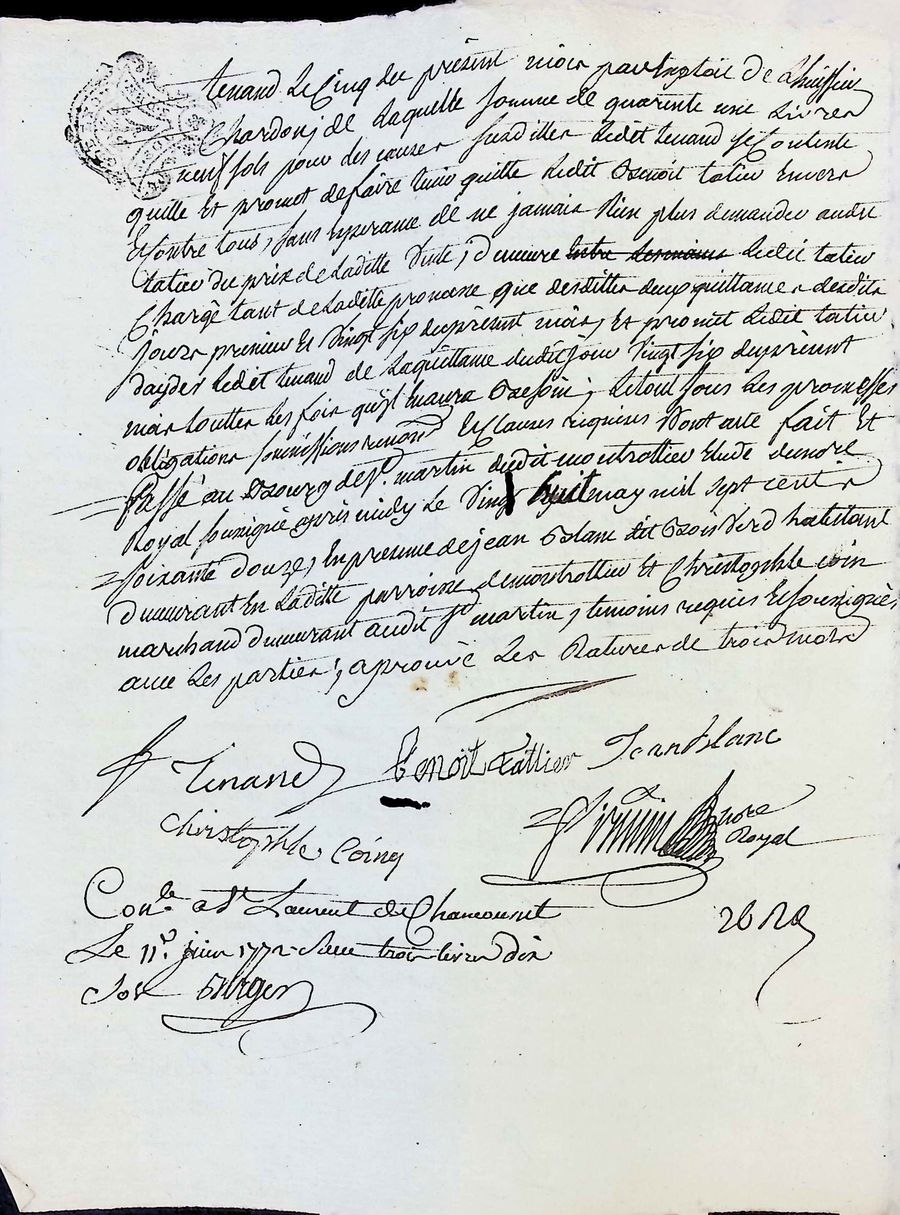 tenand Le Cinq du présent mois par Exploit de Lhuissier
Chardon; de Laquelle somme de quarente une Livres
neuf sols pour des causes susdittes Ledit tenand se Contente
quitte Et promet de faire tenir quitte Ledit Benoit tatieu Envers
Et Contre tous, sans Esperance de ne jamais Rien plus demander audit
tatieu du prix de Laditte Vente; demeure Entre Ses mains Ledit tatieu
Chargé tant de Laditte promesse que desdittes deux quittances desdits
jours premier Et Vingt six du présent mois, Et promet Ledit tatieu
dayder Ledit tenand de Laquittance dudit jour Vingt six du présent
mois touttes Les fois qu'il En aura Besoin; Letout sous Les promesses
obligations soumissions renond Et Clauses requises Dont acte fait Et
passé au Bourg de St. martin dudit montrottier Etude du notre
Royal soussigné apres midy Le Vingt huit may mil sept cent
soixante douze, En presence de jean Blanc dit Bois Verd habitant
demeurant En Laditte parroisse de montrottier Et Christophle coin
marchand demeurant audit St martin, temoins requis Et soussignés
avec Les parties; aprouvé Les Ratures de trois mots
Tenand Benoit tattier Jean blanc
Christophle Coing
notre
Royal
Conlé a St Laurent de Chamousset
Le 11e. juin 1772 Reçu trois livres dix
sols